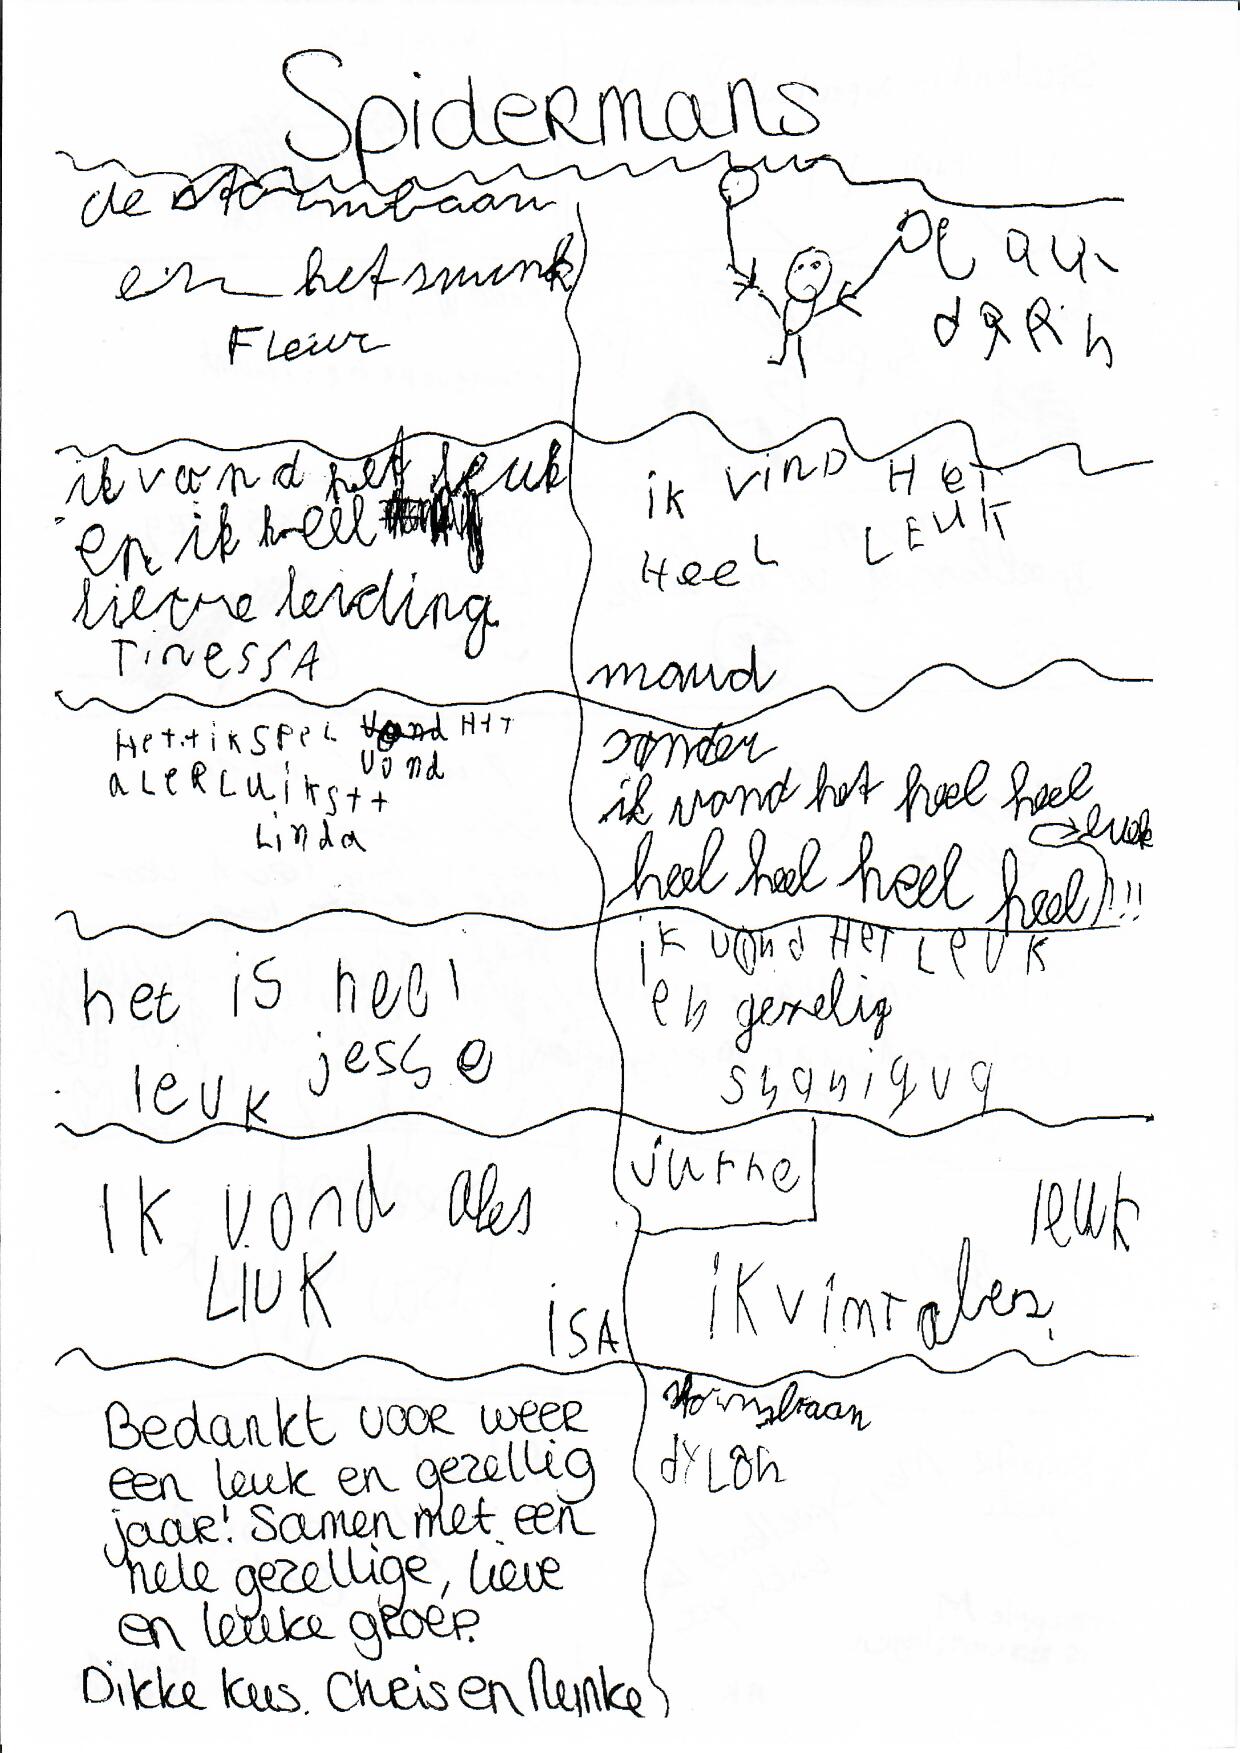 Spidermans
de stormbaan
en het smink
Fleur
De au-
darin
ik vond het leuk
en ik heel
lieve leiding
TinessA
ik vind Het
Heel LEUK
maud
Hettikspel Vond Htt
vond
aLERLuikstt
Linda
sonder
ik vond het heel heel
leuk
heel heel heel heel!!!
het is heel
leuk jesse
ik vond HeT Leuk
en gezelig
shaniqua
IK vond ales
LiUK
iSA
jurre
leuk
iK vint ales
stormbaan
dyLan
Bedankt voor weer
een leuk en gezellig
jaar! Samen met een
hele gezellige, lieve
en leuke groep.
Dikke kus. Chris en Nienke